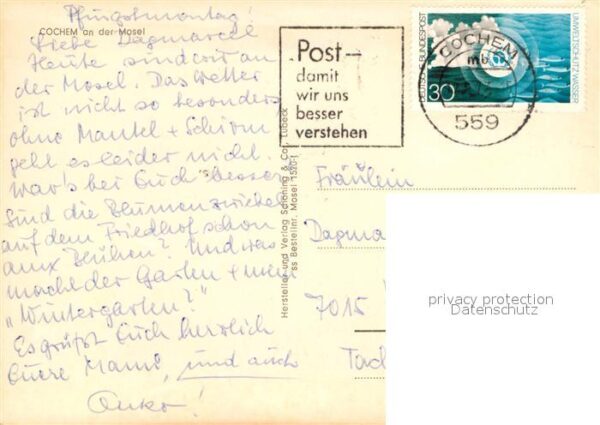 Pfingstmontag!
COCHEM an der Mosel
Liebe Dagmar
Heute sind wir an
der Mosel. Das Wetter
ist nicht so besonders
ohne Mantel + Schirm
geht es leider nicht.
War's bei Euch besser
Sind die Blumenzwiebel
auf dem Friedhof schon
am Blühen? Und was
macht der Garten + mein
„Wintergarten?“
Es grüßt Euch herzlich
Eure Mami, und auch
Anko!
Hersteller und Verlag Schöning & Co., Lübeck
ss Bestellnr. Mosel 1520
Post-
damit
wir uns
besser
verstehen
COCHEM
mb
559
DEUTSCHE BUNDESPOST
30
UMWELTSCHUTZ: WASSER
Fräulein
Dagma
7015
Tad
privacy protection
Datenschutz